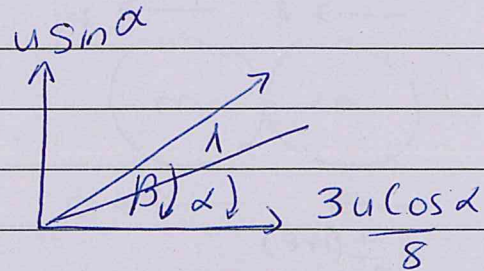 u sin α
λ
β α 3u Cos α
8